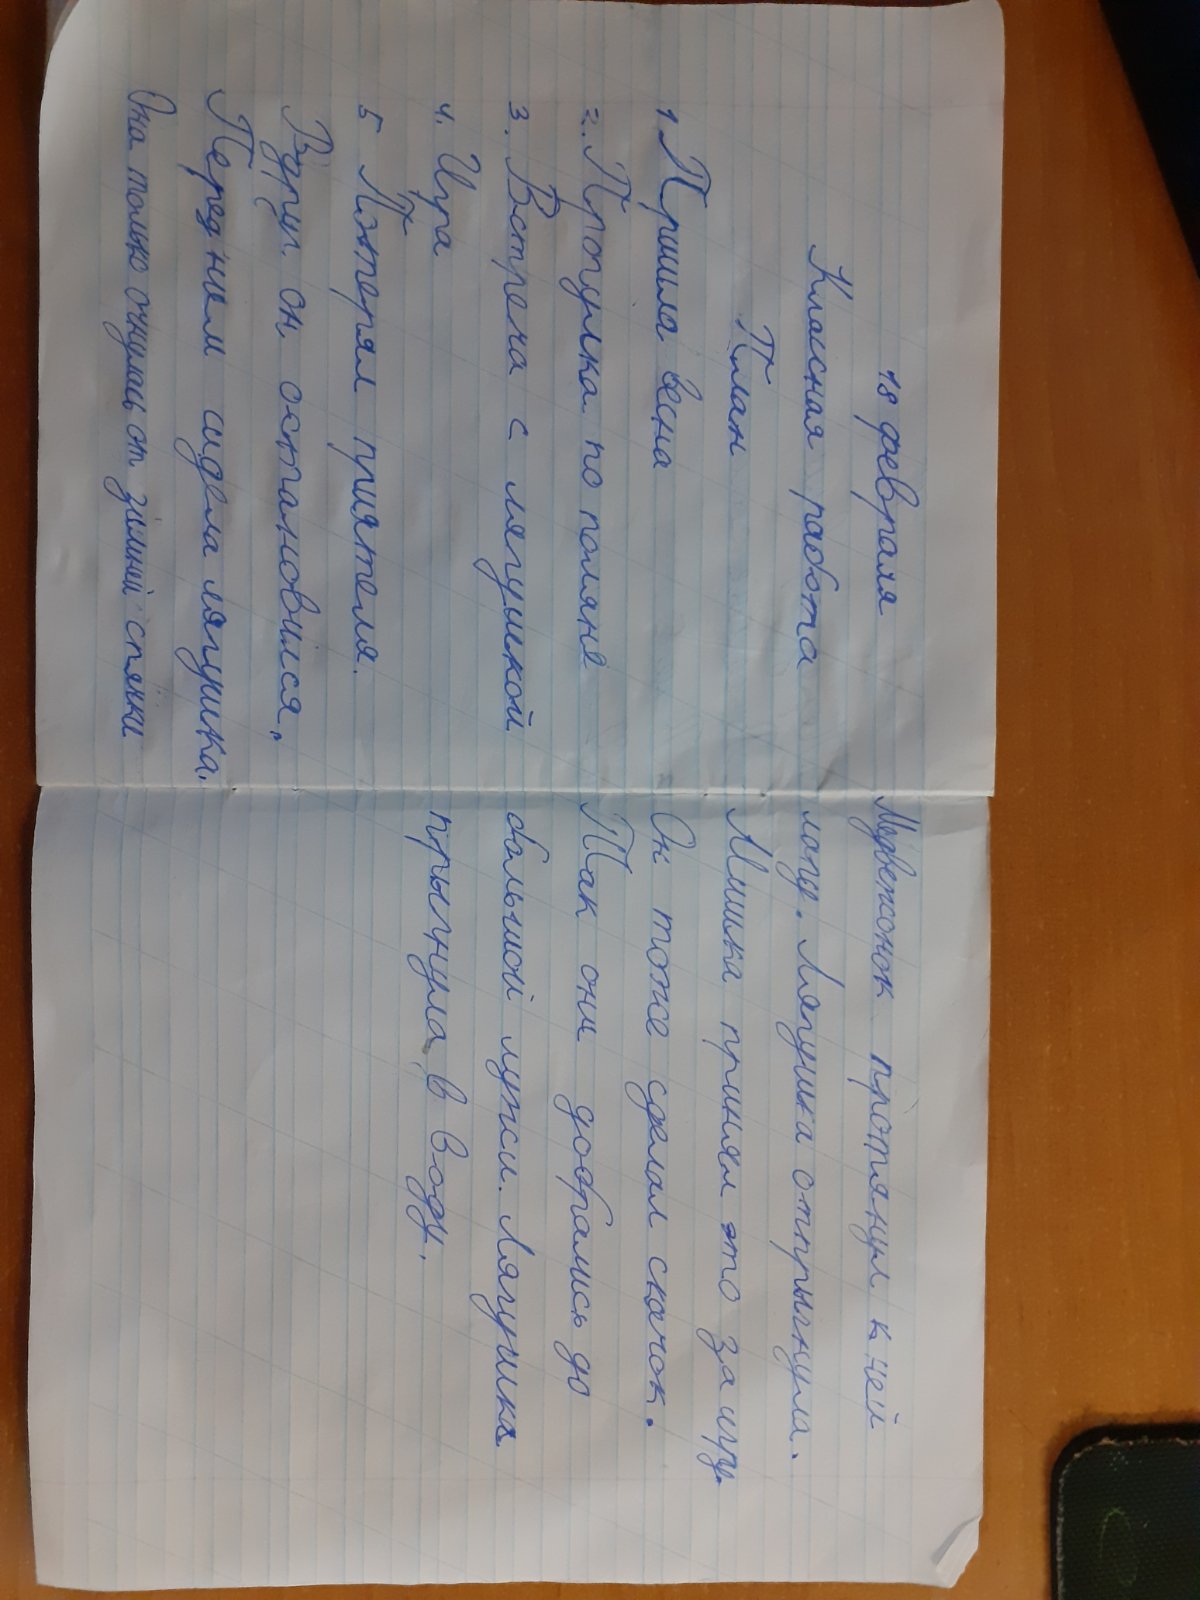 18 февраля
Класная работа
План
1 Пришла весна
2. Прогулка по поляне
3. Встреча с лягушкой
4. Игра
5 Потерял приятеля.
Вдруг он остановился.
Перед ним сидела лягушка.
Она только очнулась от зимней спячки
Медвежонок протянул к ней
лапу. Лягушка отпрыгнула.
Мишка принял это за игру
Он тоже сделал скачок.
Так они добрались до
большой лужи. Лягушка
прыгнула в воду.